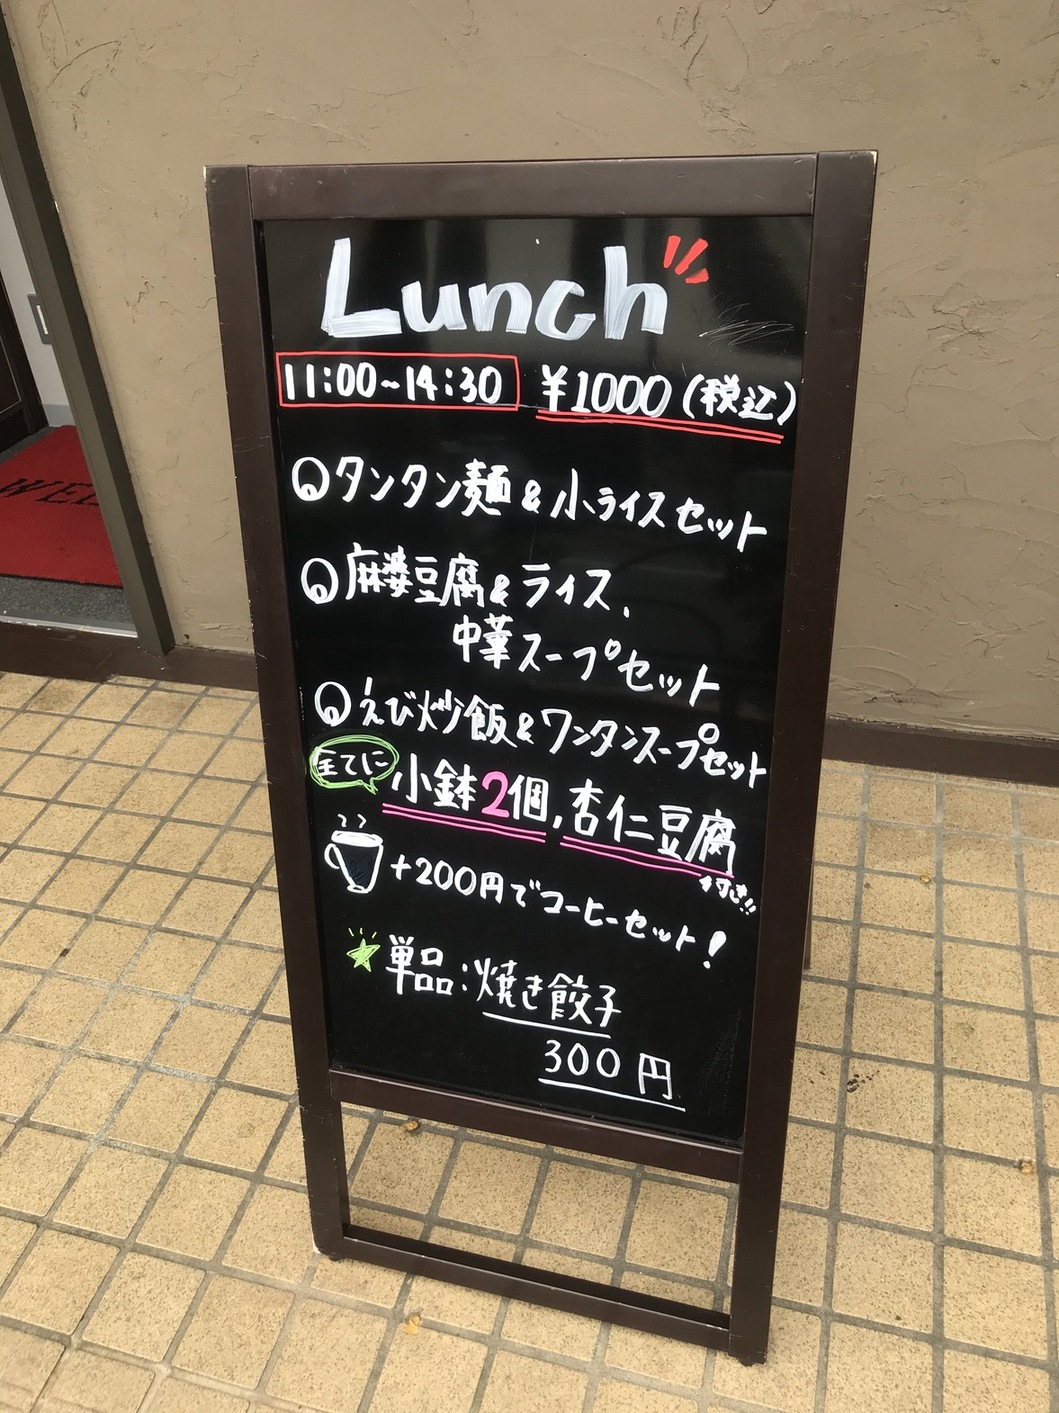 Lunch
11:00~14:30 ¥1000(税込)
タンタン麺&小ライスセット
麻婆豆腐&ライス、
中華スープセット
えび炒飯&ワンタンスープセット
全てに 小鉢2個,杏仁豆腐
付き!!
+200円でコーヒーセット!
単品:焼き餃子
300円
WEL